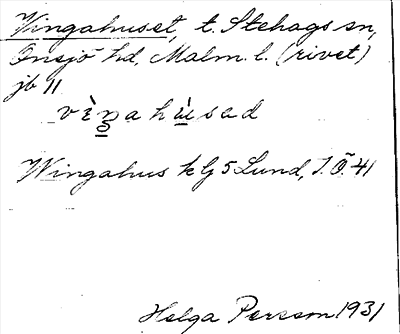 Vingahuset, t. Stehags sn,
Onsjö hd, Malm. l. (rivet)
jb 11
vìŋahùsad
Wingahus k G 5 Lund, I.Ö. 41
Helga Persson 1931